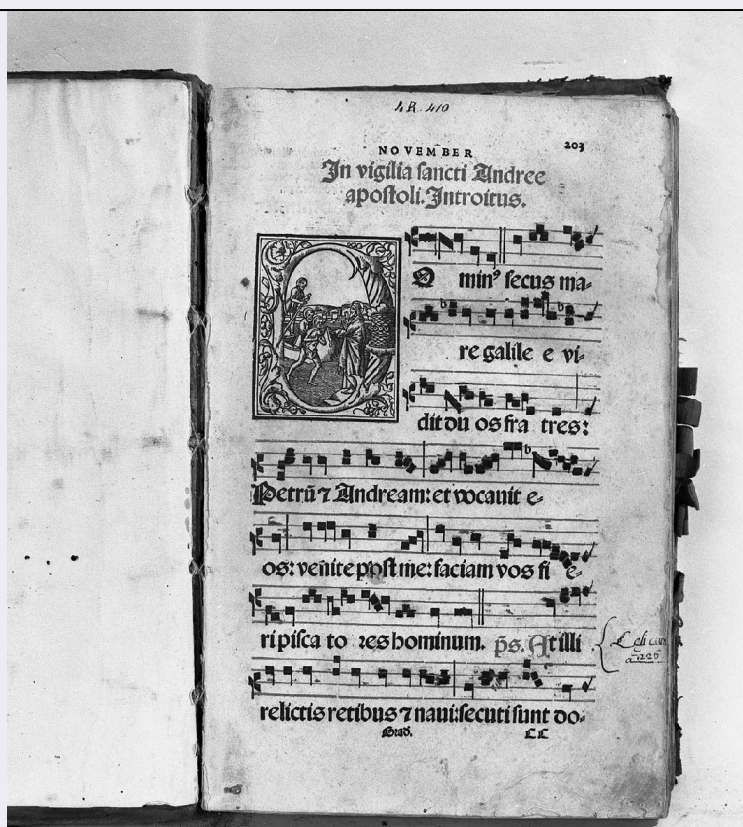 4R. 410
NOVEMBER
203
In vigilia sancti Andree
apostoli. Introitus.
O minꝰ secus ma-
re galile e vi-
dit du os fra tres:
Petrū ⁊ Andream: et vocauit e-
os: venite post me: faciam vos fi e-
ri pisca to res hominum. p̄s. At illi
relictis retibus ⁊ naui: secuti sunt do-
Grad.
CC